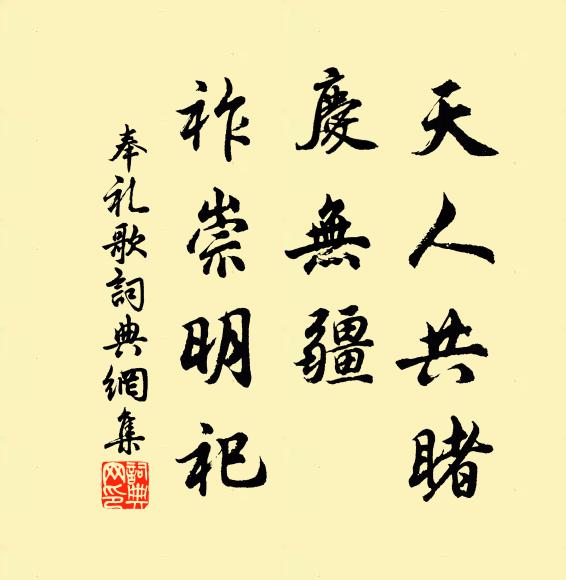 天人共睹
慶無疆
祚崇明祀
奉礼歌詞典網集
詞典网印